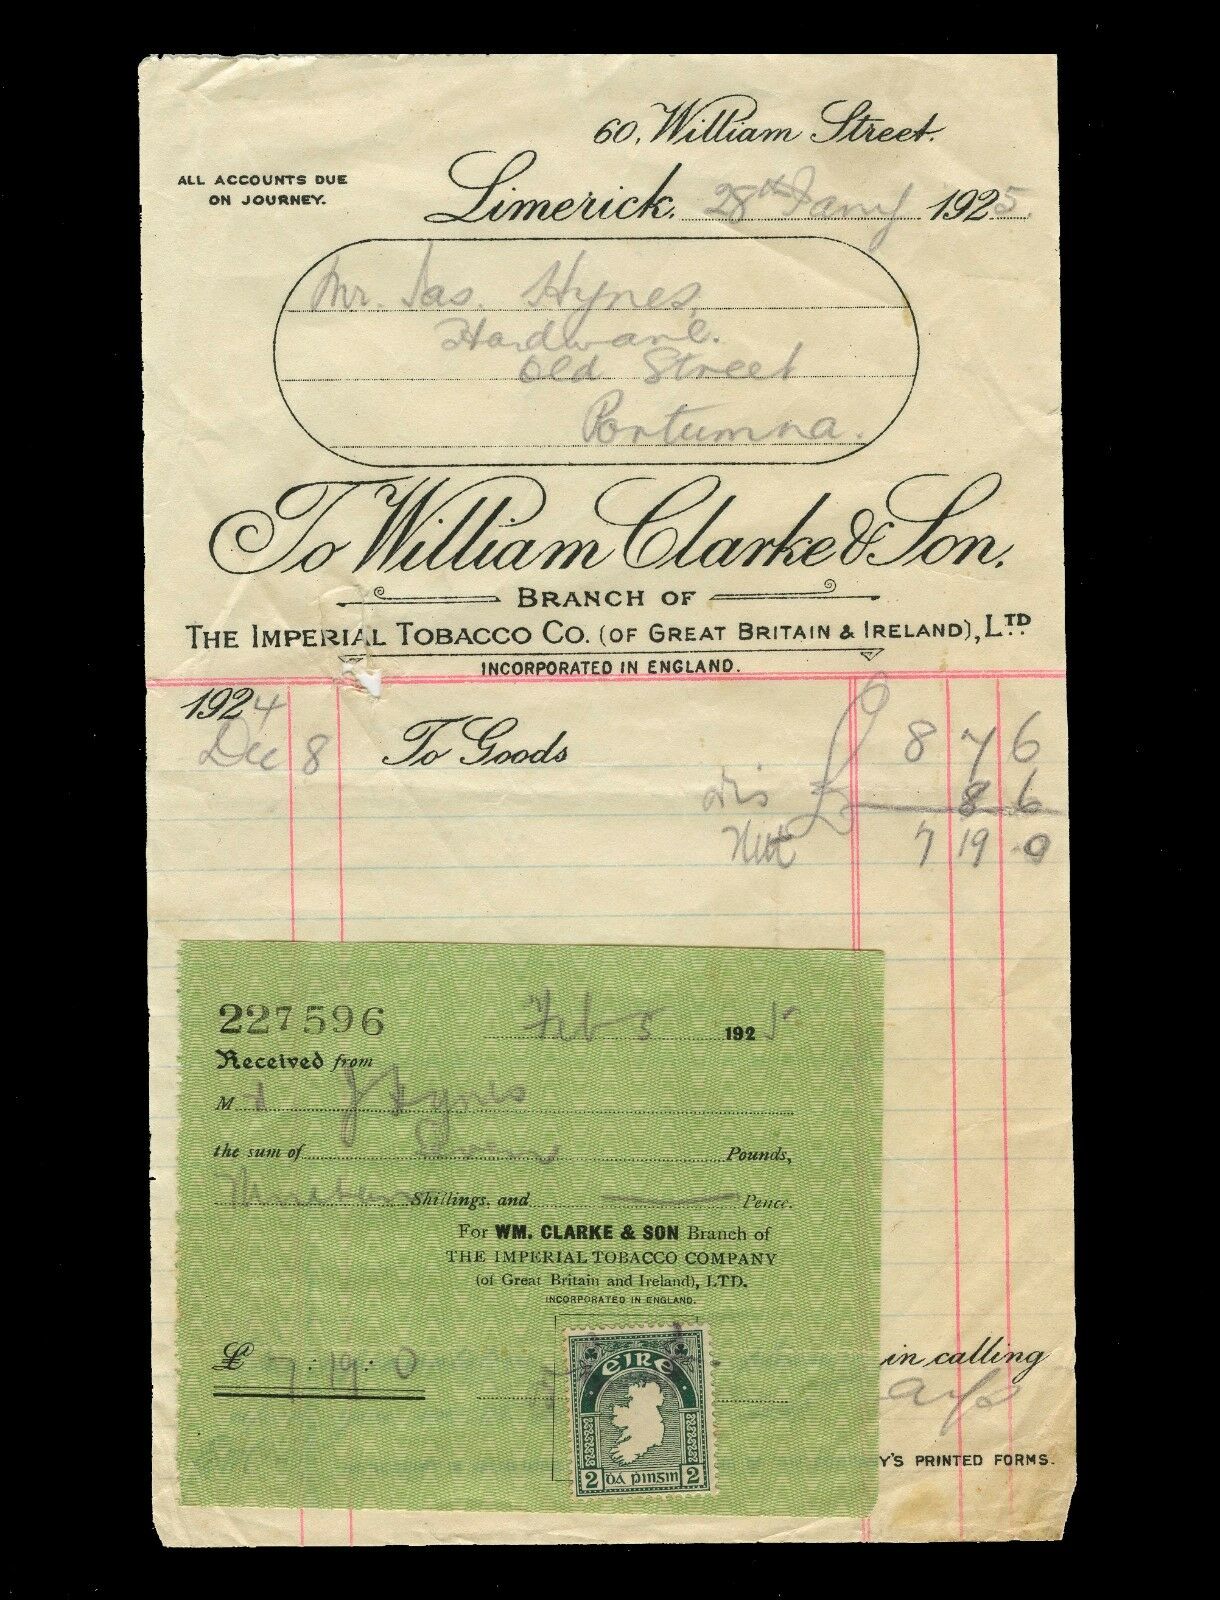 60, William Street.
ALL ACCOUNTS DUE
ON JOURNEY.
Limerick. 28th Jany 1925.
Mr. Jas. Hynes,
Hardware.
Old Street
Portumna.
To William Clarke & Son.
BRANCH OF
THE IMPERIAL TOBACCO CO. (OF GREAT BRITAIN & IRELAND), LTD
INCORPORATED IN ENGLAND.
1924
Dec 8 To Goods £ 8 7 6
Dis 8 6
Nett £ 7 19 0
227596 Feb 5 1925
Received from
Mr J Hynes
the sum of Seven Pounds,
Nineteen Shillings, and Pence.
For WM. CLARKE & SON Branch of
THE IMPERIAL TOBACCO COMPANY
(of Great Britain and Ireland), LTD.
INCORPORATED IN ENGLAND.
£ 7 : 19 : 0
éIRe
2 Dá pINSIN 2
in calling
Y'S PRINTED FORMS.